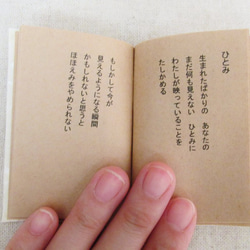 ひとみ
生まれたばかりの　あなたの
まだ何も見えない　ひとみに
わたしが映っていることを
たしかめる
もしかして今が
見えるようになる瞬間
かもしれないと思うと
ほほえみをやめられない